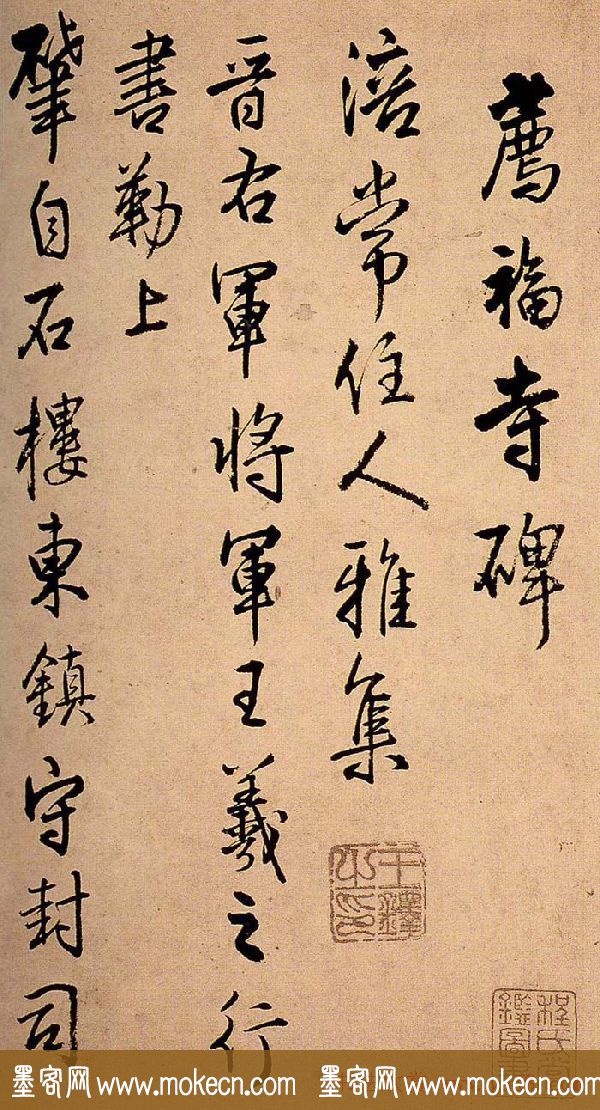 薦福寺碑
涪常住人雅集
晋右軍将軍王羲之行
書勒上
肇自石樓東鎮守封司
王鐸之印
墨客网 www.mokecn.com 墨客网 www.mokecn.com